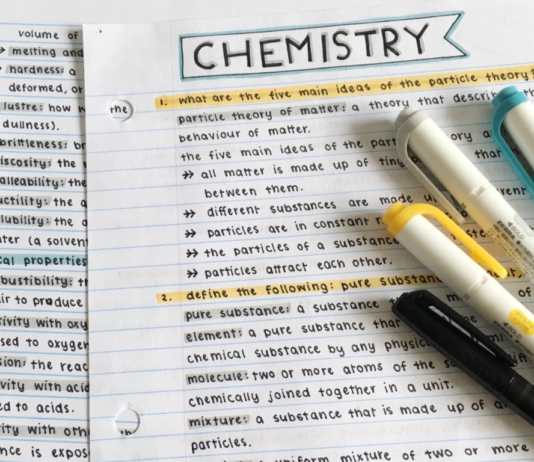 volume of
→ melting and
→ hardness: a
deformed, or
lustre: how
dullness).
brittleness: br
iscosity: the
alleability: the
uctility: the a
lubility: the a
ter (a solven
cal properties
bustibility: th
air to produce
tivity with oxy
sed to oxyger
sion: the reac
tivity with acid
ed to acids.
tivity with oth
nce is expos
the
CHEMISTRY
1. what are the five main ideas of the particle theory?
particle theory of matter: a theory that describ the
behaviour of matter.
the five main ideas of the part ory a
→ all matter is made up of tiny that
between them.
→ different substances are made u erent
→ particles are in constant
→ the particles of a substance
→ particles attract each other.
2. define the following: pure substan
pure substance: a substance
element: a pure substance that
chemical substance by any physic
molecule: two or more atoms of the
chemically joined together in a unit.
mixture: a substance that is made up of a
particles.
uniform mixture of two or more